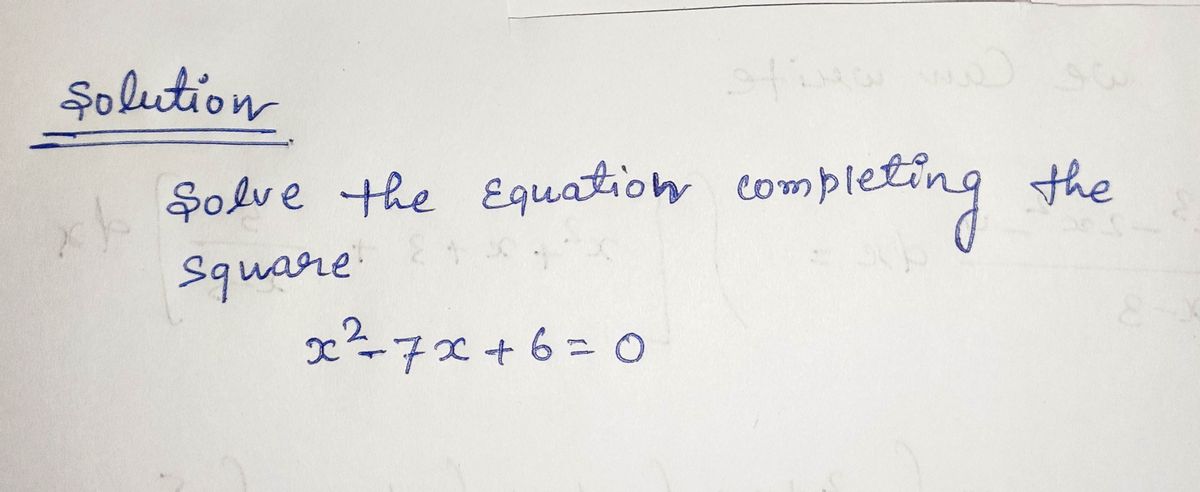 Solution
Solve the Equation completing the
square
x²-7x+6=0